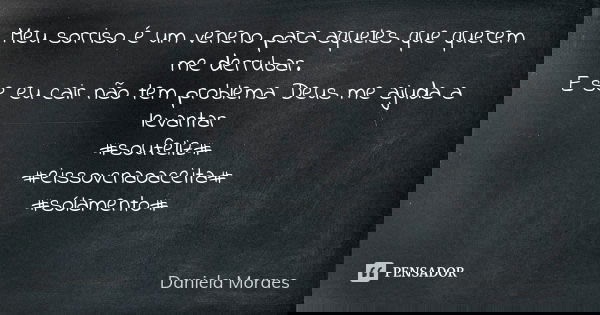 Meu sorriso é um veneno para aqueles que querem
me derrubar.
E se eu cair não tem problema Deus me ajuda a
levantar
#soufeliz#
#eissovcnaoaceita#
#sólamento#
Daniela Moraes
PENSADOR